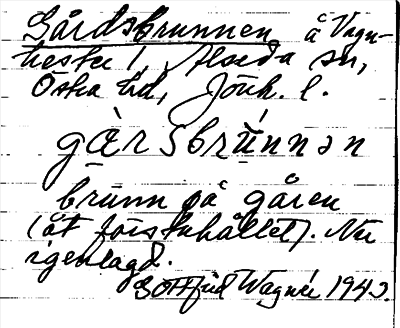 Gårdsbrunnen å Vagn-
hester 1, Alseda sn,
Östra hd, Jönk. l.
gàrsbrùnnən
brunn på gåren
(åt förstuhållet). Nu
igenlagd.
Gottfrid Wagnér 1942.